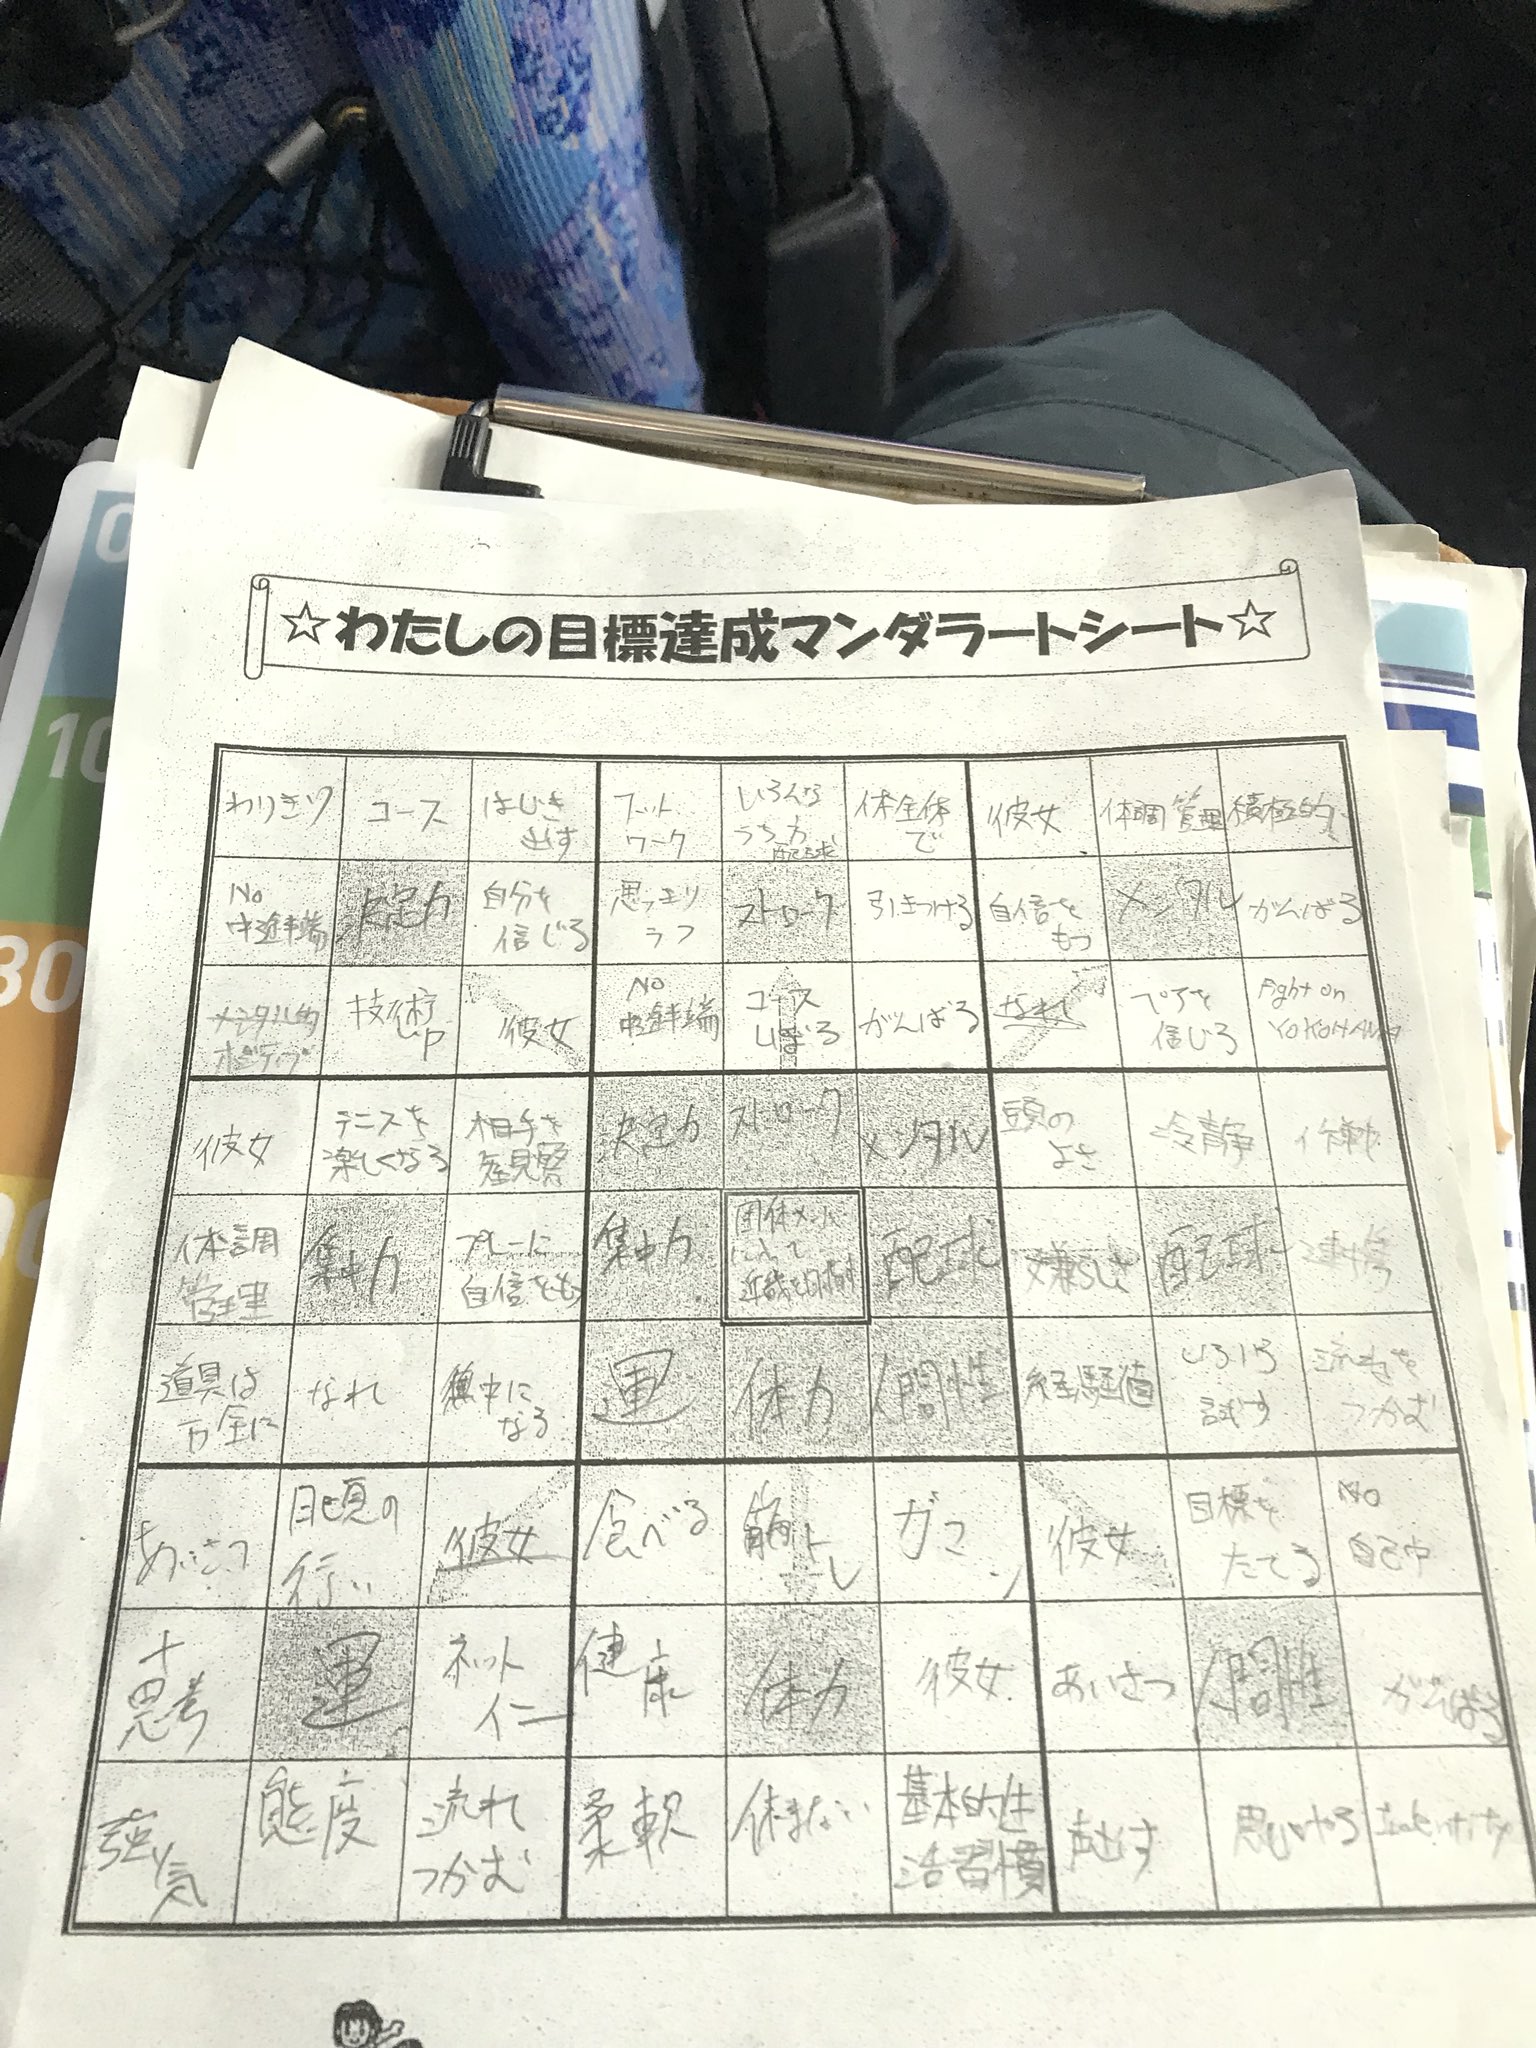 ☆わたしの目標達成マンダラートシート☆
わりきり コース はじき出す フットワーク いろんなうち方 配球 体全体で 彼女 体調管理 積極的
No中途半端 決定力 自分を信じる 思いっきりラフ ストローク 引きつける 自信をもつ メンタル がんばる
メンタル的ポジティブ 技術up 彼女 No中途半端 コースしぼる がんばる なれ ペアを信じる Fight on YOKOHAMA
彼女 テニスを楽しくなる 相手を観察 決定力 ストローク メンタル 頭のよさ 冷静
体調管理 集中力 プレーに自信をもつ 集中力 団体メンバーにして近畿を目指す 配球 嫌らしさ 配球 連携
道具は万全に なれ 夢中になる 運 体力 人間性 経験値 いろいろ試す 流れをつかむ
あいさつ 日頃の行い 彼女 食べる 筋トレ ガマン 彼女 目標をたてる No自己中
+思考 運 ネットイン 健康 体力 彼女 あいさつ 人間性 がんばる
強気 態度 流れつかむ 柔軟 休まない 基本的生活習慣 声出す 思いやる Identity
0
10
30